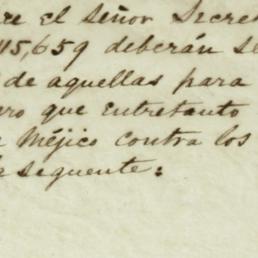 re el Señor Secre
115,659 deberán se
de aquellas para
ro que entretanto
Méjico contra los
la seguente: